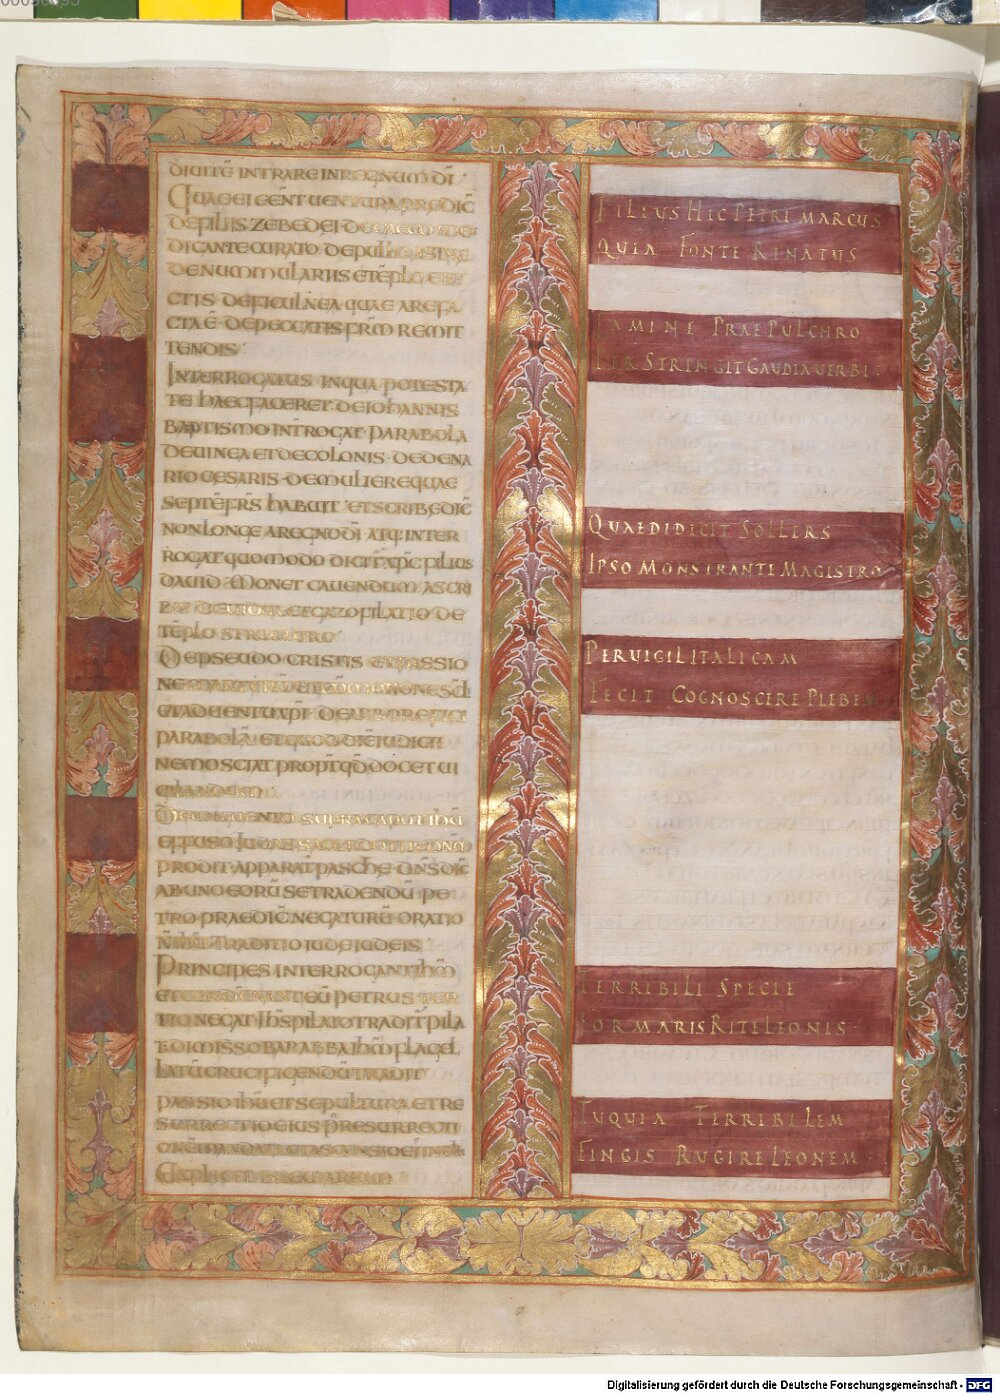 DIUITĒ INTRARE IN REGNUM DĪ
QUAE EI EĒNT UENTURA PREDIC̄
DE FILIIS ZEBEDEI DE CAECO
DICANTE CURATO DE PULLO ASINAE
DE NUMMULARIIS E TĒPLO EIE
CTIS DE FICULNEA QUAE AREFA
CTA Ē DE PECCATIS FRM̄ REMIT
TENDIS
INTERROGATUS IN QUA POTESTA
TE HAEC FACERET DE IOHANNIS
BAPTISMO INT̄ROGAT PARABOLA
DE UINEA ET DE COLONIS DE DENA
RIO CESARIS DE MULIERE QUAE
SEPTĒ FR̄S HABUIT ET SCRIBĘ DIC̄
NON LONGE A REGNO DĪ ATQ INTER
ROGAT QUOMODO DICIT̄ XP̄C FILIUS
DAUID MONET CAUENDUM A SCRI
BIS DE UIDUA ET GAZOFILATIO DE
TĒPLO STRUCTURO
DE PSEUDO CRISTIS ET PASSIO
NE
ET ADUENTU XP̄I DE ARBORE FICI
PARABOLĀ ET QUOD DIĒ IUDICII
NEMO SCIAT PROPT̄ QD̄ DOCET UI
GILANDUM
DE UNGUENTO SUPRA CAPUT IHŪ
EFFUSO IUDAS SACERDOTIB
PRODIT APPARAT̄ PASCHE DN̄S DIC̄
AB UNO EORŪ SE TRADENDŪ PE
TRO PRAEDIC̄ NEGATURŪ ORATIO
IHŪ TRADITIO IUDE IUDEIS
PRINCIPES INTERROGANT IHM̄
ET EŪ PETRUS TER
TIO NEGAT IHS̄ PILATO TRADIT̄ PILA
T̄ DIMISSO BARABBA IHM̄ FLAGEL
LATŪ CRUCIFIGENDŪ TRADIT
PASSIO IHŪ ET SEPULTURA ET RE
SURRECTIO EIUS P̄ RESURRECTI
ONĒ MANDATA
EXPLICIT BREUIARIUM
FILIUS HIC PETRI MARCUS
QUIA FONTE RENATUS
FAMINE PRAEPULCHRO
PERSTRINGIT GAUDIA UERBI
QUAE DIDICIT SOLLERS
IPSO MONSTRANTE MAGISTRO
PERUIGIL ITALICAM
FECIT COGNOSCERE PLEBEM
TERRIBILI SPECIE
FORMARIS RITE LEONIS
TU QUIA TERRIBILEM
FINGIS RUGIRE LEONEM
Digitalisierung gefördert durch die Deutsche Forschungsgemeinschaft - DFG